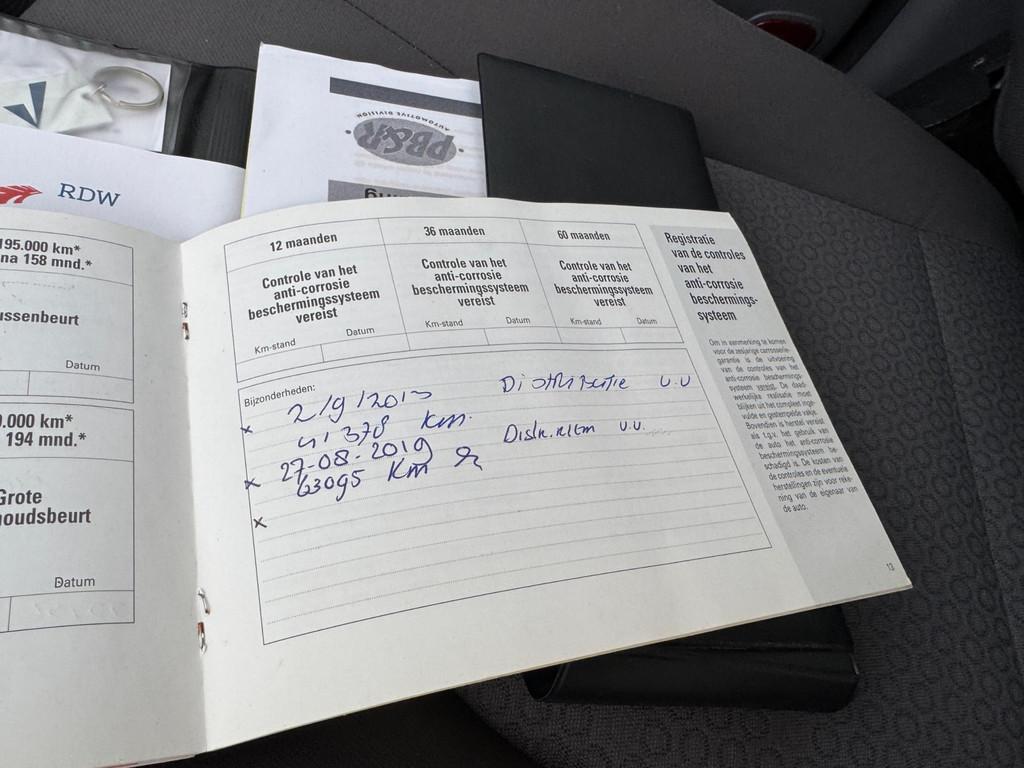 PB&R
AUTOMOTIVE DIVISION
RDW
195.000 km*
na 158 mnd.*
ussenbeurt
Datum
0.000 km*
194 mnd.*
Grote
houdsbeurt
Datum
12 maanden
36 maanden
60 maanden
Controle van het
anti-corrosie
beschermingssysteem
vereist
Km-stand Datum
Controle van het
anti-corrosie
beschermingssysteem
vereist
Km-stand Datum
Controle van het
anti-corrosie
beschermingssysteem
vereist
Km-stand Datum
Bijzonderheden:
x 2/9/2013 Distributie v.v
41378 km.
x 27-08-2019 Distr.riem v.v.
63095 Km
x
Registratie
van de controles
van het
anti-corrosie
beschermings-
systeem
Om in aanmerking te komen
voor de zesjarige carrosserie-
garantie is de uitvoering
van de controles van het
anti-corrosie beschermings-
systeem vereist. De daad-
werkelijke realisatie moet
blijken uit het compleet inge-
vulde en gestempelde vakje.
Bovendien is herstel vereist
als t.g.v. het gebruik van
de auto het anti-corrosie
beschermingssysteem be-
schadigd is. De kosten van
de controles en de eventuele
herstellingen zijn voor reke-
ning van de eigenaar van
de auto.
13